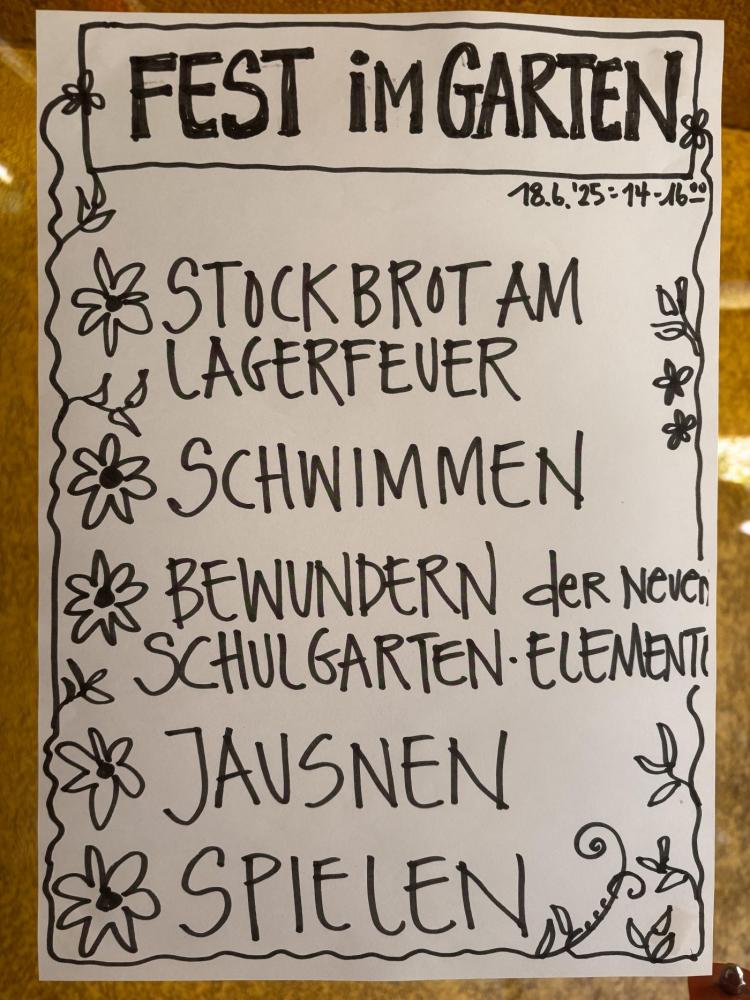 FEST im GARTEN
18.6.'25 = 14-16⁰⁰
STOCKBROT AM
LAGERFEUER
SCHWIMMEN
BEWUNDERN der Neuen
SCHULGARTEN-ELEMENTE
JAUSNEN
SPIELEN